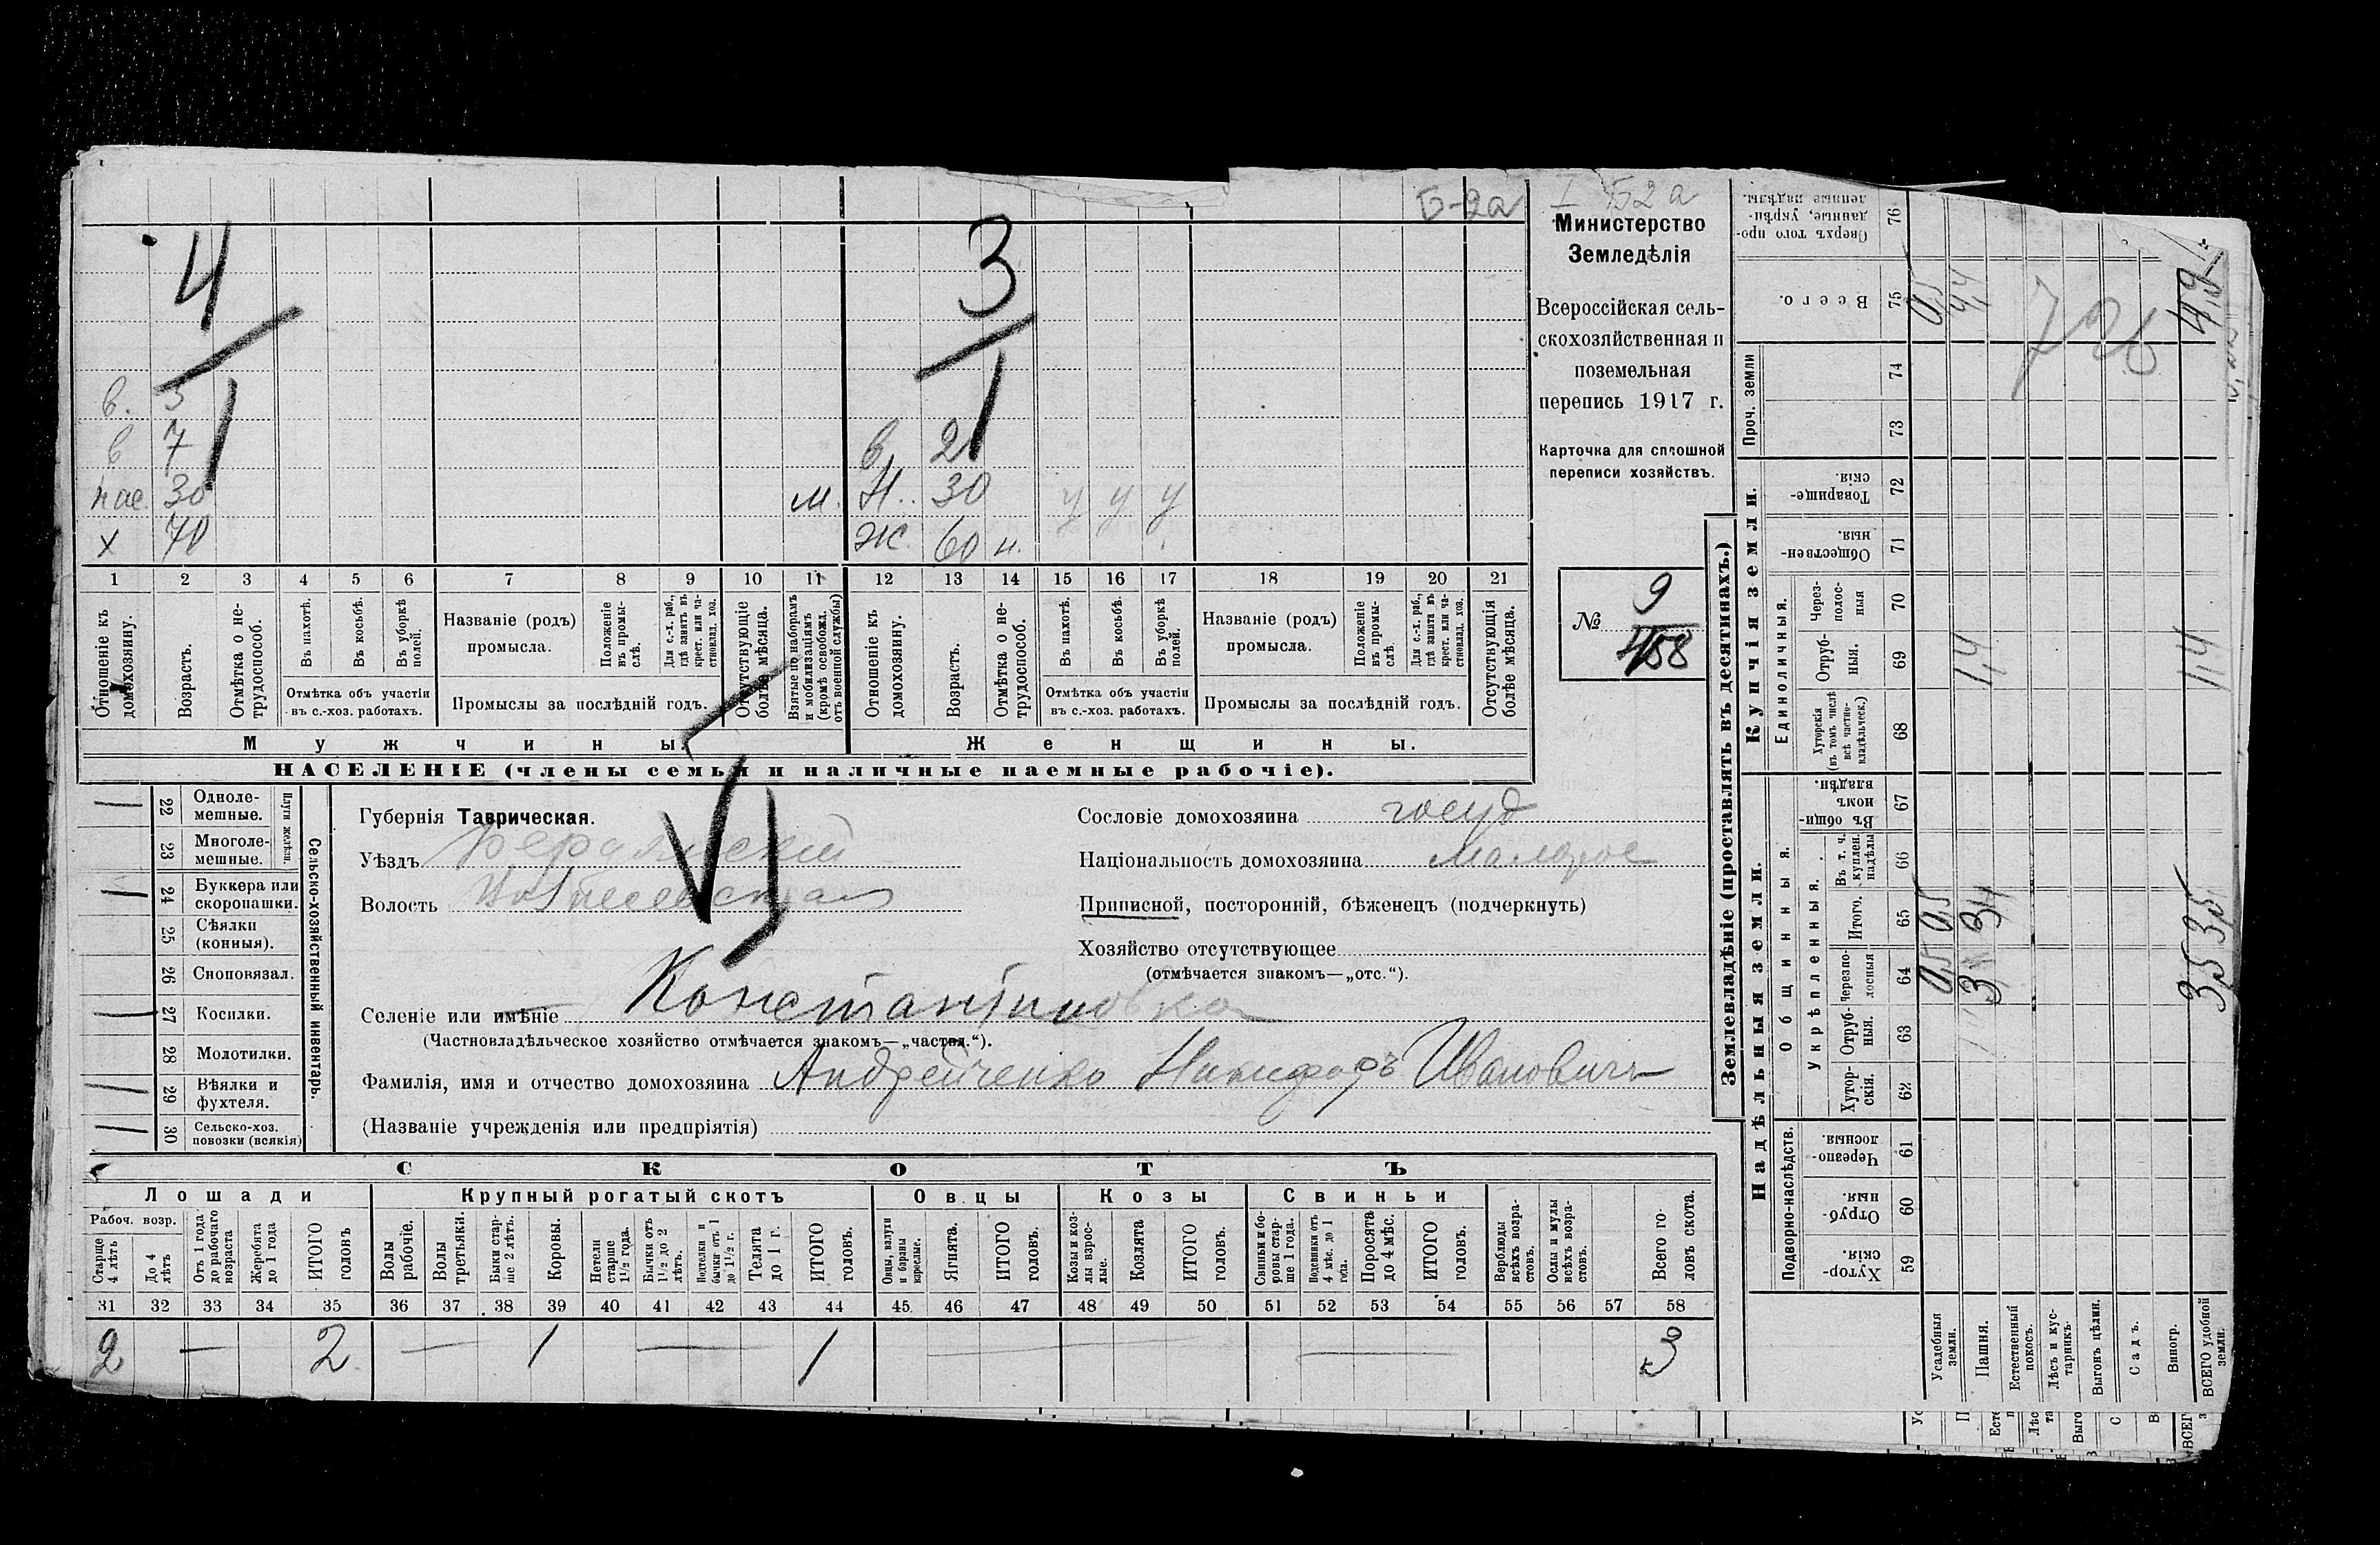 Б-2а
I Б2а
4
3
1
1
в. 3
в 7
в 2
пас. 30
м. Н. 30 у у у
х 70
Ж. 60 н.
1 2 3 4 5 6 7 8 9 10 11 12 13 14 15 16 17 18 19 20 21
Отношеніе къ домохозяину.
Возрастъ.
Отмѣтка о нетрудоспособ.
Въ пахотѣ.
Въ косьбѣ.
Въ уборкѣ полей.
Отмѣтка объ участіи
въ с.-хоз. работахъ.
Названіе (родъ)
промысла.
Положеніе въ промыслѣ.
Для с.-х. раб., гдѣ занятъ въ крест. или частновлад. хоз.
Промыслы за послѣдній годъ.
Отсутствующіе болѣе мѣсяца.
Взятые по наборамъ и мобилизаціямъ (кромѣ освобожд. отъ военной службы)
Отношеніе къ домохозяину.
Возрастъ.
Отмѣтка о нетрудоспособ.
Въ пахотѣ.
Въ косьбѣ.
Въ уборкѣ полей.
Отмѣтка объ участіи
въ с.-хоз. работахъ.
Названіе (родъ)
промысла.
Положеніе въ промыслѣ.
Для с.-х. раб., гдѣ занята въ крест. или частновлад. хоз.
Промыслы за послѣдній годъ.
Отсутствующія болѣе мѣсяца.
Мужчины.
Женщины.
НАСЕЛЕНІЕ (члены семьи и наличные наемные рабочіе).
Министерство
Земледѣлія
Всероссійская сель-
скохозяйственная и
поземельная
перепись 1917 г.
Карточка для сплошной
переписи хозяйствъ.
№ 9
458
Сельско-хозяйственный инвентарь.
Плуги желѣзн.
22 Одноле-
мешные.
23 Многоле-
мешные.
24 Буккера или
скоропашки.
25 Сѣялки
(конныя).
26 Сноповязал.
27 Косилки.
28 Молотилки.
29 Вѣялки и
фухтеля.
30 Сельско-хоз.
повозки (всякія)
Губернія Таврическая.
Уѣздъ
Волость
Селеніе или имѣніе Константиновка
(Частновладѣльческое хозяйство отмѣчается знакомъ—„частвл.“).
Фамилія, имя и отчество домохозяина Андрейченко Никифоръ Ивановичъ
(Названіе учрежденія или предпріятія)
VI
Сословіе домохозяина госуд
Національность домохозяина малорос
Приписной, посторонній, бѣженецъ (подчеркнуть)
Хозяйство отсутствующее
(отмѣчается знакомъ—„отс.“).
СКОТЪ
Лошади Крупный рогатый скотъ Овцы Козы Свиньи
Рабоч. возр.
Старше 4 лѣтъ
До 4 лѣтъ
Отъ 1 года до рабочаго возраста
Жеребята до 1 года
ИТОГО головъ
Волы рабочіе.
Волы третьяки.
Быки старше 2 лѣтъ.
Коровы.
Нетели старше 1½ года.
Бычки отъ 1½ до 2 лѣтъ.
Подтелки и бычки отъ 1 до 1½ г.
Телята до 1 г.
ИТОГО головъ.
Овцы, валухи и бараны взрослые.
Ягнята.
ИТОГО головъ.
Козы и козлы взрослые.
Козлята
ИТОГО головъ.
Свиньи и боровы старше 1 года.
Подсвинки отъ 4 мѣс. до 1 года.
Поросята до 4 мѣс.
ИТОГО головъ.
Верблюды всѣхъ возрастовъ.
Ослы и мулы всѣхъ возрастовъ.
Всего головъ скота.
31 32 33 34 35 36 37 38 39 40 41 42 43 44 45 46 47 48 49 50 51 52 53 54 55 56 57 58
2 — 2 — 1 — 1 — — 3
Землевладѣніе (проставлять въ десятинахъ.)
Купчія земли.
Надѣльныя земли.
Проч. земли
Единоличныя.
Общинныя.
Укрѣпленныя.
Подворно-наслѣдств.
Сверхъ того проданные, укрѣпленные надѣлы. 76
Всего. 75
74
73
Товарищескія. 72
Общественныя. 71
Черезполосныя 70
Отрубныя. 69
Хуторскія (въ томъ числѣ всѣ частновладѣльческ.) 68
Въ общинномъ владѣн. 67
Въ т. ч. куплен. надѣлы 66
Итого. 65
Черезполосныя 64
Отрубныя. 63
Хуторскія. 62
Черезполосныя. 61
Отрубныя. 60
Хуторскія. 59
Усадебныя земли. 0,5 0,5 0,5
Пашня. 3 3 1,4 4,4
Естественный покосъ.
Лѣсъ и кустарникъ.
Выгонъ цѣлин.
Садъ.
Виногр.
ВСЕГО удобной земли. 3,5 3,5 1,4 4,9
726